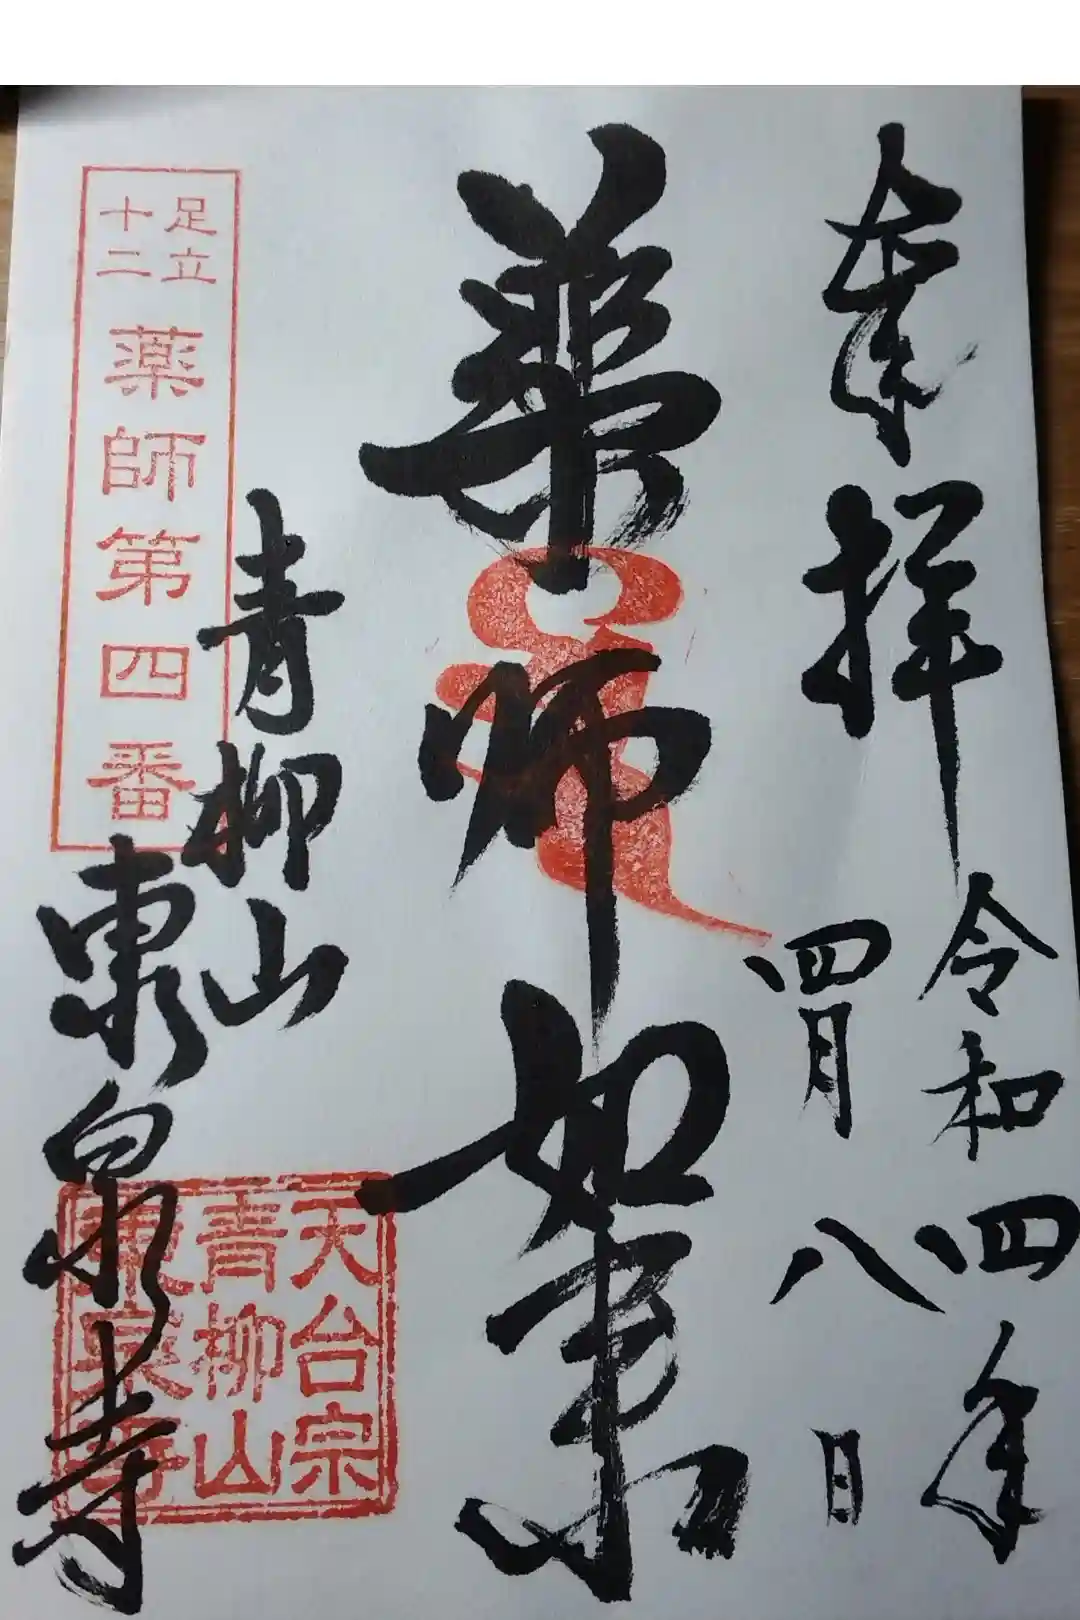 奉拝
令和四年
四月八日
薬師如来
青柳山
東泉寺
足立
十二
薬師第四番
天台宗
青柳山
東泉寺